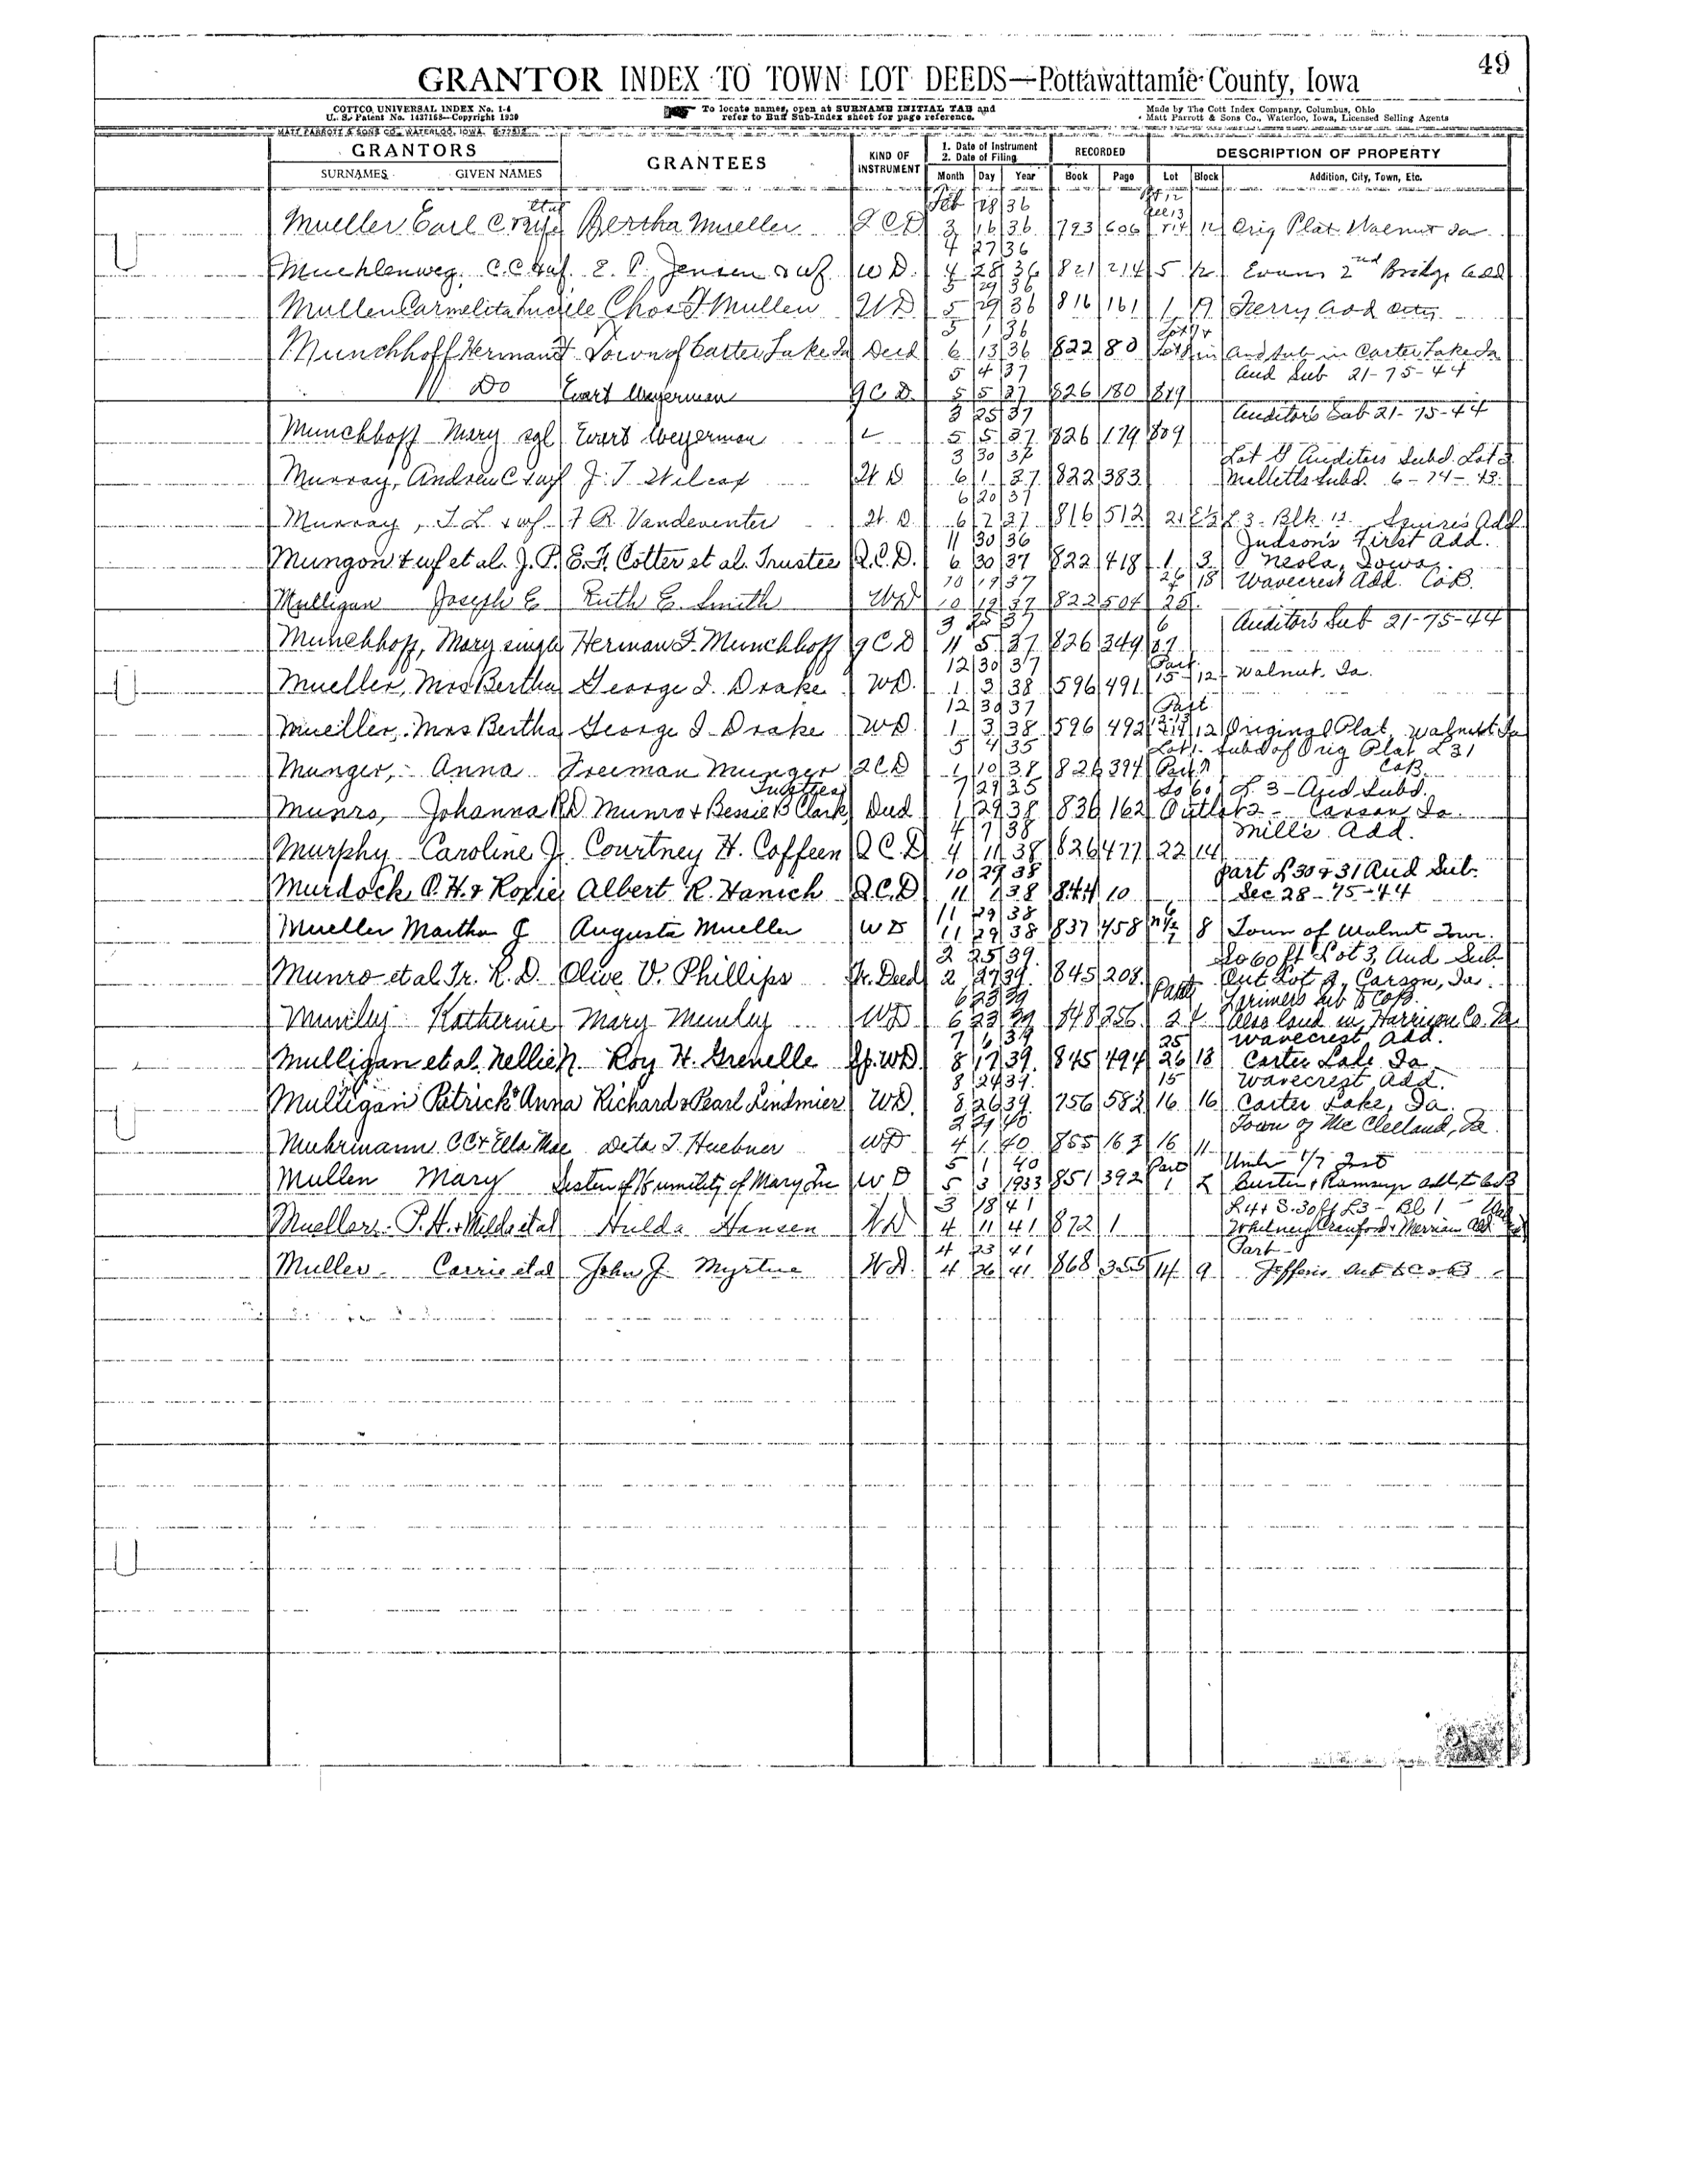 49
GRANTOR INDEX TO TOWN LOT DEEDS—Pottawattamie County, Iowa
COTTCO UNIVERSAL INDEX No. 1-4
U. S. Patent No. 1437168—Copyright 1930
To locate names, open at SURNAME INITIAL TAB and
refer to Buff Sub-Index sheet for page reference.
Made by The Cott Index Company, Columbus, Ohio
Matt Parrott & Sons Co., Waterloo, Iowa, Licensed Selling Agents
MATT PARROTT & SONS CO., WATERLOO, IOWA
GRANTORS GRANTEES KIND OF INSTRUMENT 1. Date of Instrument 2. Date of Filing RECORDED DESCRIPTION OF PROPERTY
SURNAMES GIVEN NAMES Month Day Year Book Page Lot Block Addition, City, Town, Etc.
Feb 28 36
Mueller Earl C Bertha Mueller Q C D 3 16 36 793 606 12 Orig Plat Walnut Ia
4 27 36
Muehlenweg, C.C. & wf. E. P. Jensen & wf. W D. 4 28 36 821 214 5 12 Evans 2nd Bridge add
5 29 36
Mullen Carmelita Lucille Chas F Mullen W D 5 29 36 816 161 1 19 Ferry add
5 1 36
Munchhoff Herman F Town of Carter Lake Ia Deed 6 13 36 822 80 Aud Sub in Carter Lake Ia
5 4 37 Aud Sub 21-75-44
" Do Evart Weyerman Q C D. 5 5 37 826 180 8&9
3 25 37 Auditor's Sub 21-75-44
Munchhoff Mary sgl Evart Weyerman 5 5 37 826 179 8&9
3 30 37 Lot Auditors Subd. Lot 3
Murray, Andrew C & wf J. T. Wilcox W D 6 1 37 822 383 Melletts Subd. 6-74-43.
6 20 37
Murray, T. L. & wf. F R Vandeventer W. D. 6 2 37 816 512 L 3 - Blk 12 Squires Add
11 30 36 Judson's First Add.
Mungon & wf et al. J. P. E. F. Cotter et al. Trustee Q.C.D. 6 30 37 822 418 1 3 Neola, Iowa.
10 19 37 26 18 Wavecrest Add. Co B.
Mulligan Joseph E Ruth E. Smith WD 10 19 37 822 504 25
3 25 37 6 Auditors Sub 21-75-44
Munchhoff, Mary single Herman F. Munchhoff Q C D 11 5 37 826 349
12 30 37 Part
Mueller, Mrs Bertha George I. Drake WD. 1 3 38 596 491 15 12 Walnut, Ia.
12 30 37 Part
Mueller, Mrs Bertha George I Drake WD 1 3 38 596 492 12 Original Plat, Walnut Ia
5 4 35 Lot 1. Subd of Orig Plat L 31
Munger, Anna Freeman Munger Q C D 1 10 38 826 394 Part CoB.
Trustees 7 29 35 So 60 L. 3 - Aud Subd.
Munro, Johanna R D Munro & Bessie B Clark, Deed 1 29 38 836 162 Outlot 2 - Carson Ia.
4 7 38 Mill's Add.
Murphy Caroline J. Courtney H. Coffeen Q C. D 4 11 38 826 477 22 14
10 29 38 part L 30 & 31 Aud Sub.
Murdock O. H. & Roxie Albert R. Hanich Q.C.D 11 1 38 844 10 Sec 28-75-44
11 29 38 6
Mueller Martha J Augusta Mueller W D 11 29 38 837 458 N½ 7 8 Town of Walnut Iowa.
2 25 39. So 60 ft Lot 3, Aud Sub
Munro et al Tr. R. D. Olive V. Phillips Tr. Deed 2 27 39. 845 208 Out Lot 2, Carson, Ia.
6 23 39 Part Larimers sub to CoB.
Katherine Mary WD 6 23 39 848 256 Also land in Harrison Co. Ia
7 6 39 25 Wavecrest Add.
Mulligan et al. Nellie N. Roy H. Grenelle Sp. WD. 8 17 39 845 494 26 18 Carter Lake Ia.
8 24 39. 15 Wavecrest Add.
Mulligan Patrick & Anna Richard & Pearl Lindmier WD. 8 26 39. 756 582 16 16 Carter Lake, Ia.
2 29 40 Town of Mc Clelland, Ia.
Muhrmann C C & Ella Mae Deta T. Huebner WD 4 1 40 855 163 16 11
5 1 40 Part Undv 1/7 Int
Mullen Mary Sisters of Humility of Mary Inc W D 5 3 1933 851 392 1 Curtis & Ramseys add to CoB
3 18 41 L 4 & S. 30 ft L 3 - Bl 1
P. H. & et al Hulda Hansen W D 4 11 41 872 1 Whitney Cranford & Merriam Add
4 23 41 Part
Muller Carrie et al John J. Myrtue W.D. 4 26 41 868 355 14 9 Jefferis Sub to C o B